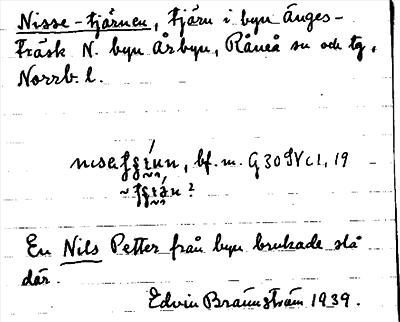 Nisse-tjärnen, tjärn i byn Änges-
träsk N. byn Årbyn, Råneå sn och tg,
Norrb. l.
bf. m. G30SVc1, 19
En Nils Petter från byn brukade slå
där.
Edvin Brännström 1939.